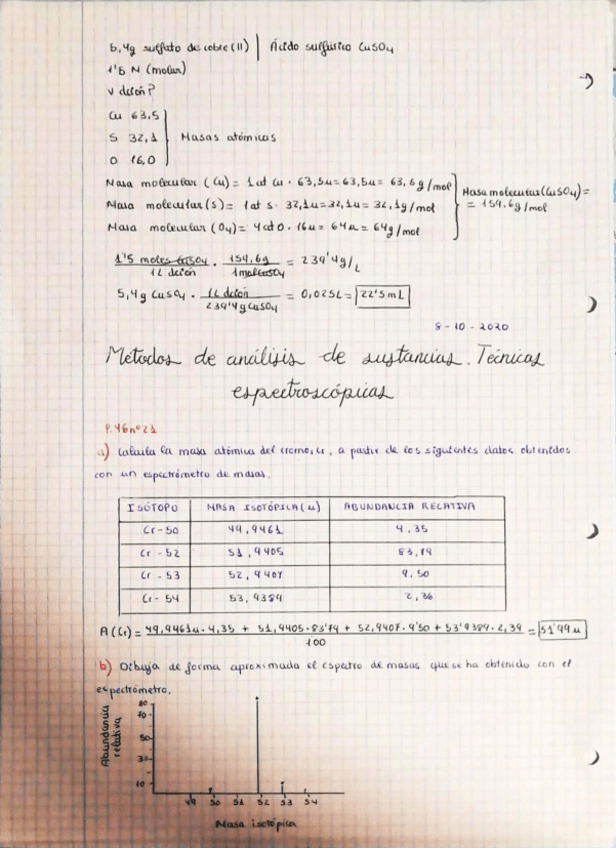 5,4g sulfato de cobre (II) | Ácido sulfúrico CuSO4
1'5 M (molar)
V dción?
Cu 63,5
S 32,1 Masas atómicas
O 16,0
Masa molecular (Cu) = 1 at Cu · 63,5u = 63,5u = 63,5 g/mol
Masa molecular (S) = 1 at S · 32,1u = 32,1u = 32,1g/mol
Masa molecular (O4) = 4 at O · 16u = 64u = 64g/mol
Masa molecular (CuSO4) =
= 159,6g/mol
1'5 moles CuSO4 / 1L dción · 159,6g / 1mol CuSO4 = 239'4g/L
5,4g CuSO4 · 1L dción / 239'4g CuSO4 = 0,025L = 22'5mL
8-10-2020
Métodos de análisis de sustancias. Técnicas
espectroscópicas
P.46 nº 21
a) Calcula la masa atómica del cromo, Cr, a partir de los siguientes datos obtenidos
con un espectrómetro de masas.
ISÓTOPO MASA ISOTÓPICA (u) ABUNDANCIA RELATIVA
Cr-50 49,9461 4,35
Cr-52 51,9405 83,79
Cr-53 52,9407 9,50
Cr-54 53,9389 2,36
A (Cr) = 49,9461u · 4,35 + 51,9405 · 83'79 + 52,9407 · 9'50 + 53'9389 · 2,39 / 100 = 51'99 u
b) Dibuja de forma aproximada el espectro de masas que se ha obtenido con el
espectrómetro.
Abundancia
relativa
80
70
50
30
10
49 50 51 52 53 54
Masa isotópica